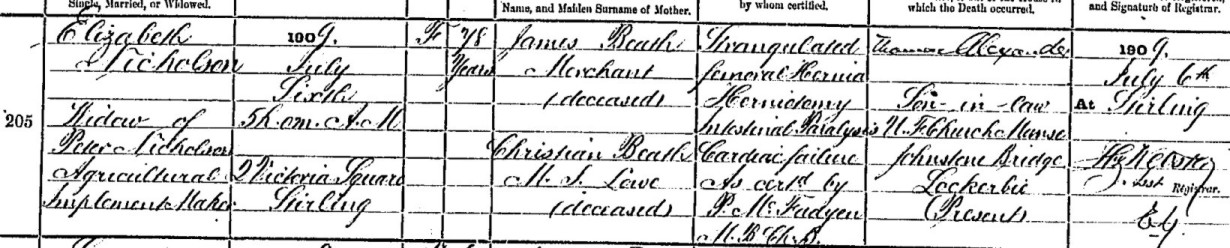 Single, Married, or Widowed.
Name, and Maiden Surname of Mother.
by whom certified.
which the Death occurred.
and Signature of Registrar.
205
Elizabeth
Nicholson
Widow of
Peter Nicholson
Agricultural
Implement Maker
1909.
July
Sixth
5h. 0m. A.M.
2 Victoria Square
Stirling
F
78
Years
James Beath
Merchant
(deceased)
Christian Beath
M. S. Lowe
(deceased)
Strangulated
femoral Hernia
Herniotomy
Intestinal Paralysis
Cardiac failure
As certd by
P. McFadyen
M.B. Ch.B.
Thomas Alexander
Son-in-law
U. F. Church Manse
Johnstone Bridge
Lockerbie
(Present)
1909.
July 6th
At Stirling
Registrar.